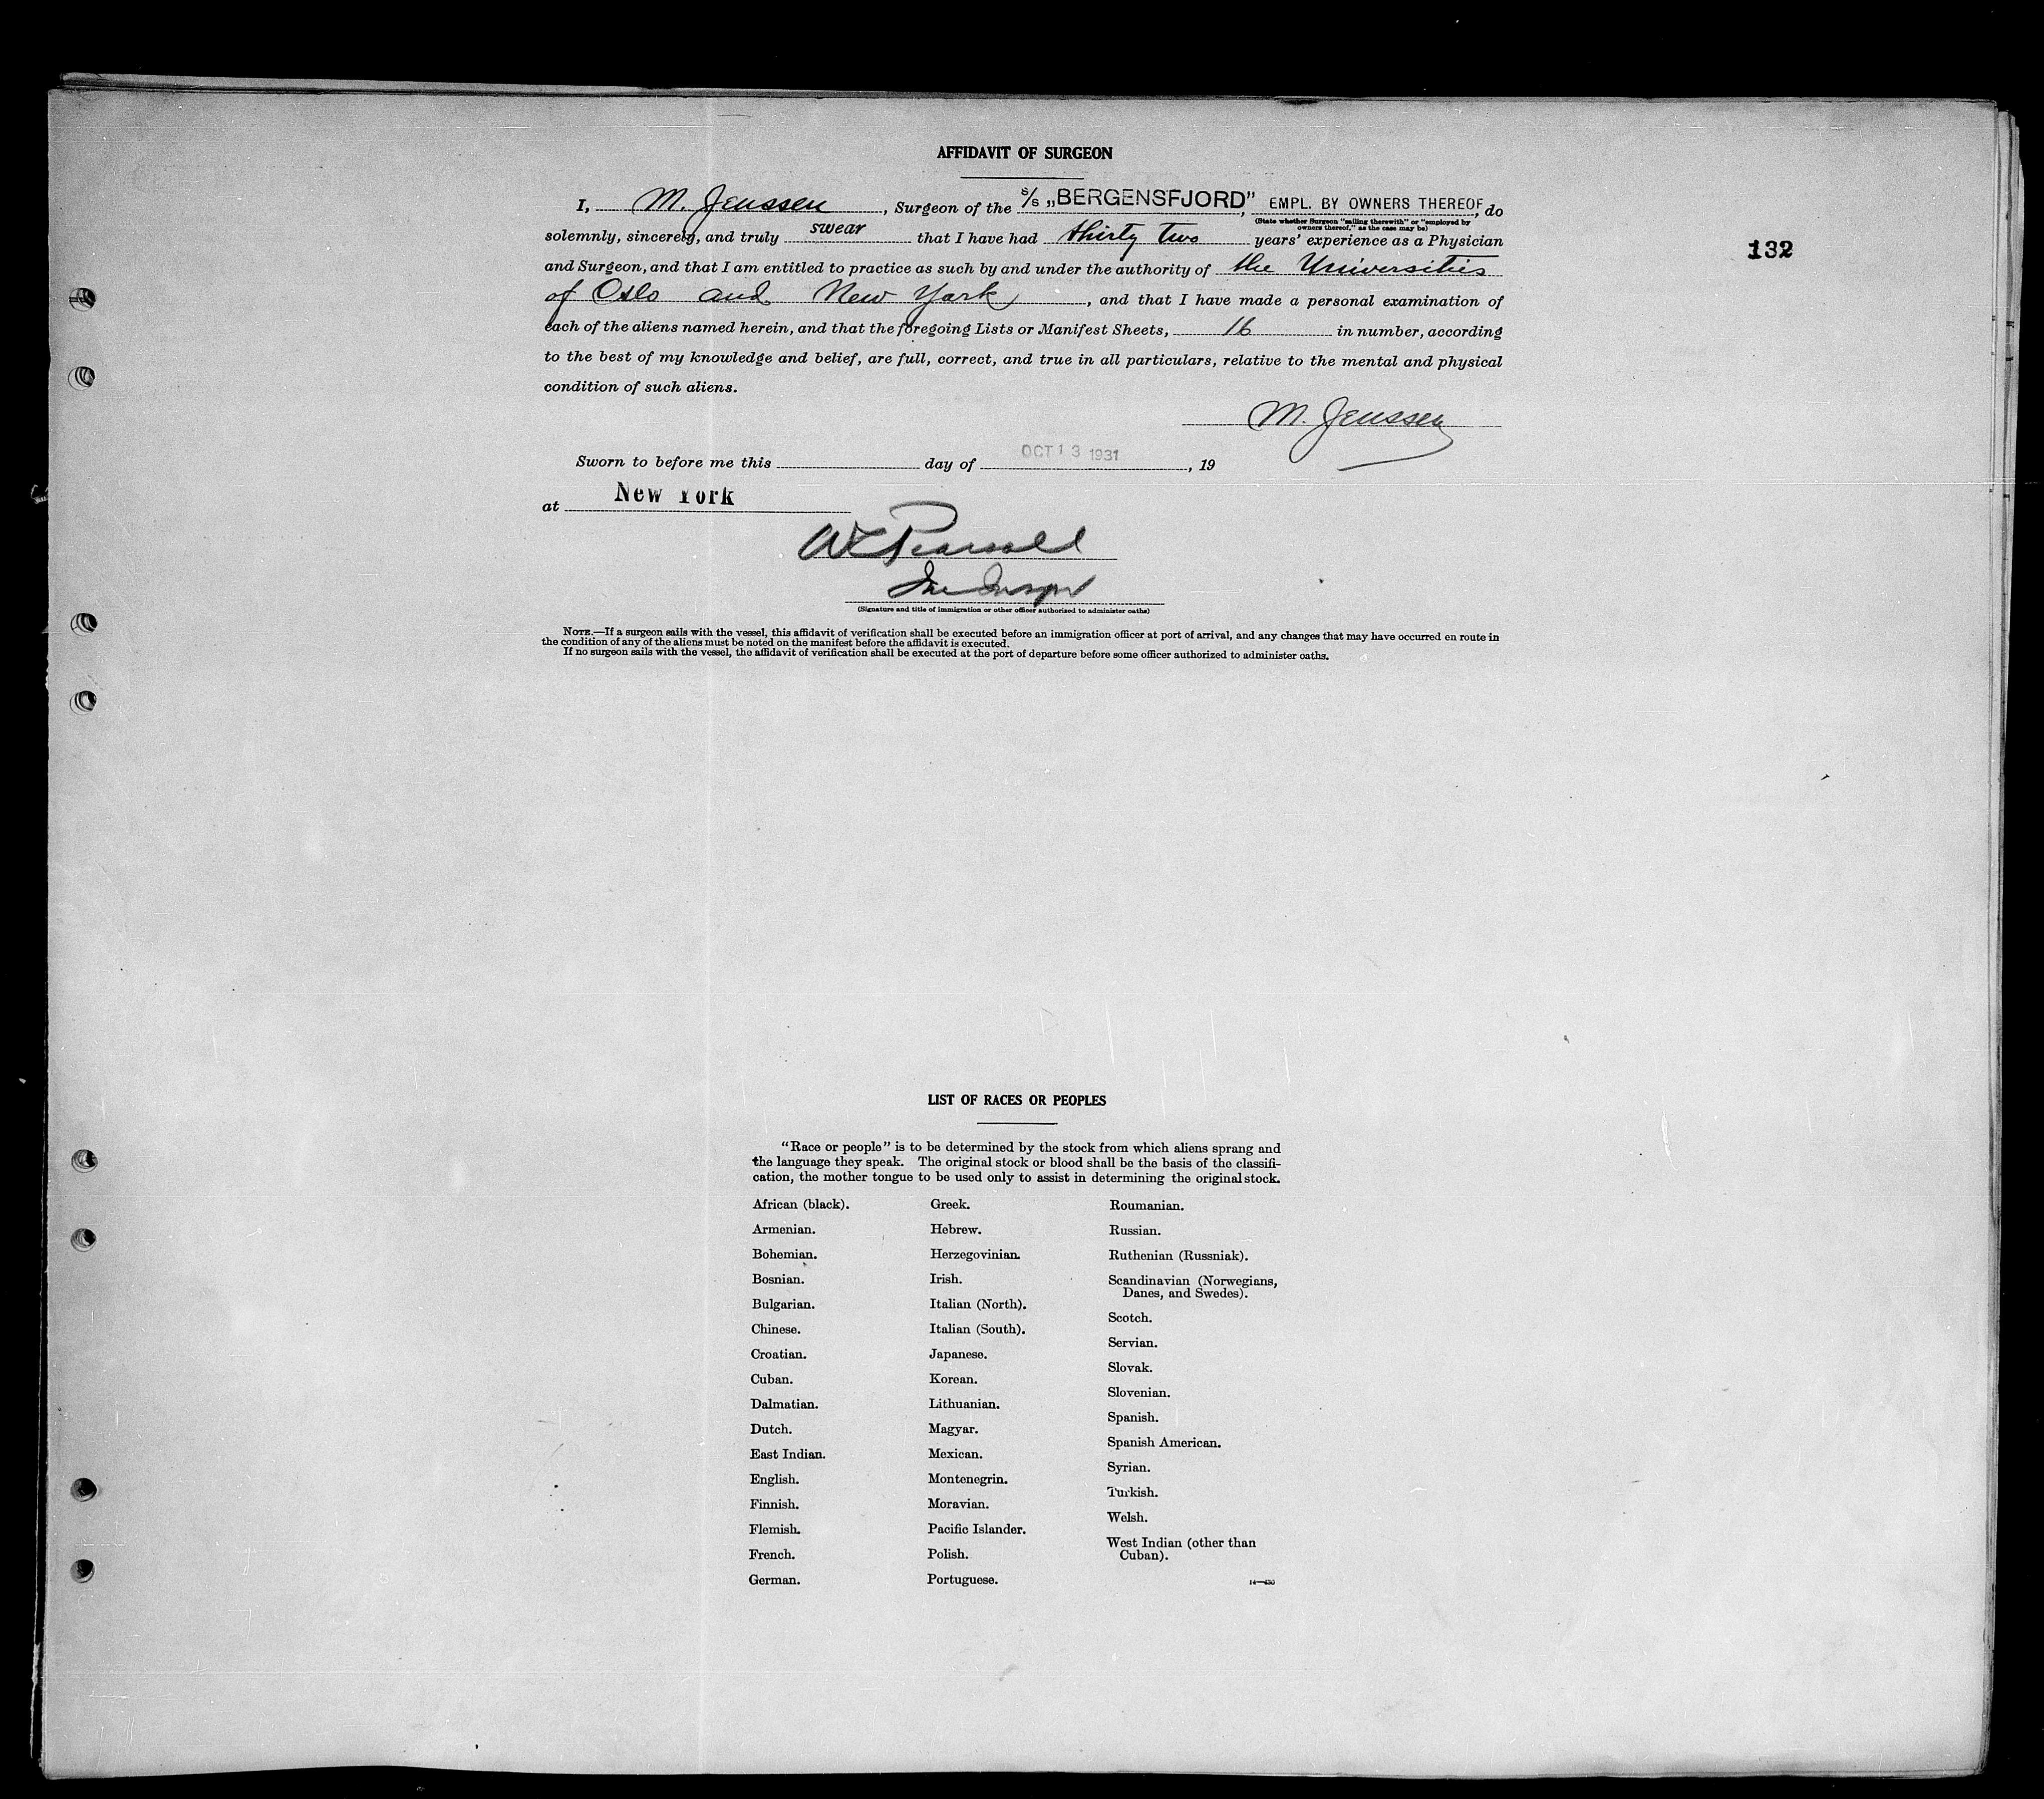 AFFIDAVIT OF SURGEON
132
I, M. Jenssen, Surgeon of the S/S „BERGENSFJORD", EMPL. BY OWNERS THEREOF, do
(State whether Surgeon "sailing therewith" or "employed by
owners thereof," as the case may be)
solemnly, sincerely, and truly swear that I have had thirty two years' experience as a Physician
and Surgeon, and that I am entitled to practice as such by and under the authority of the Universities
of Oslo and New York, and that I have made a personal examination of
each of the aliens named herein, and that the foregoing Lists or Manifest Sheets, 16 in number, according
to the best of my knowledge and belief, are full, correct, and true in all particulars, relative to the mental and physical
condition of such aliens.
M. Jenssen
Sworn to before me this day of OCT 13 1931, 19
at New York
(Signature and title of immigration or other officer authorized to administer oaths)
NOTE.—If a surgeon sails with the vessel, this affidavit of verification shall be executed before an immigration officer at port of arrival, and any changes that may have occurred en route in
the condition of any of the aliens must be noted on the manifest before the affidavit is executed.
If no surgeon sails with the vessel, the affidavit of verification shall be executed at the port of departure before some officer authorized to administer oaths.
LIST OF RACES OR PEOPLES
"Race or people" is to be determined by the stock from which aliens sprang and
the language they speak. The original stock or blood shall be the basis of the classifi-
cation, the mother tongue to be used only to assist in determining the original stock.
African (black).
Armenian.
Bohemian.
Bosnian.
Bulgarian.
Chinese.
Croatian.
Cuban.
Dalmatian.
Dutch.
East Indian.
English.
Finnish.
Flemish.
French.
German.
Greek.
Hebrew.
Herzegovinian.
Irish.
Italian (North).
Italian (South).
Japanese.
Korean.
Lithuanian.
Magyar.
Mexican.
Montenegrin.
Moravian.
Pacific Islander.
Polish.
Portuguese.
Roumanian.
Russian.
Ruthenian (Russniak).
Scandinavian (Norwegians,
Danes, and Swedes).
Scotch.
Servian.
Slovak.
Slovenian.
Spanish.
Spanish American.
Syrian.
Turkish.
Welsh.
West Indian (other than
Cuban).